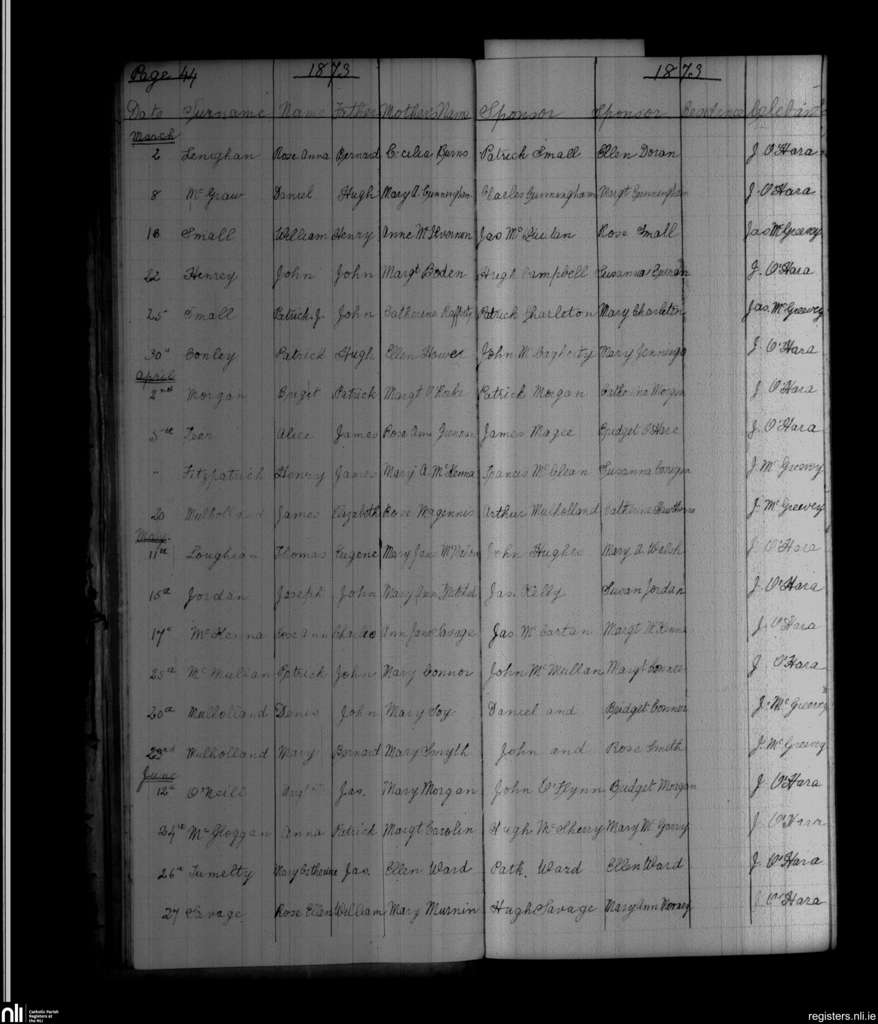 Page 44 1873 1873
Date Surname Name Father Mothers Name Sponsor Sponsor Residence Celebrant
March
2 Lenighan Rose Anna Bernard Cecilia Burns Patrick Small Ellen Doran J O'Hara
8 Mc Graw Daniel Hugh Mary A Cunningham Charles Cunningham Margt Cunningham J. O'Hara
18 Small William Henry Anne Jas Rose Small Jas McGreevy
22 Henrey John John Margt Boden Hugh Campbell Susanna J. O'Hara
25 Small Patrick J. John Catherine Rafferty Patrick Charleton Mary Charleton Jas. McGreevey
30th Conley Patrick Hugh Ellen Howes John Mary Jennings J. O'Hara
April
2nd Morgan Brigit Patrick Margt Patrick Morgan Catherine Morgan J O'Hara
5th Teer Alice James Rose Ann James Magee Bridget O'Hare J. O'Hara
" Fitzpatrick Henry James Mary A. McKenna Francis McClean Susanna J. McGreevy
20 Mulholland James Elizabeth Rose Magennis Arthur Mulholland Catherine J. McGreevey
May
11th Loughran Thomas Eugene Mary Jane John Hughes Mary A Welsh J O'Hara
15th Jordan Joseph John Mary Ann Jas. Kelly Susan Jordan J. O'Hara
17th McKenna Rose Ann Charles Ann Jane Savage Jas. McCartan Margt J. O'Hara
25th McMullan Patrick John Mary Connor John McMullan Margt J. O'Hara
20th Mulholland Denis John Mary Foy Daniel and Bridget Connor J. McGreevey
23rd Mulholland Mary Bernard Mary Smyth John and Rose Smith J. McGreevy
June
12th O'Neill Jas. Mary Morgan John O'Flynn Bridget Morgan J O'Hara
24th Anna Patrick Margt Carolin Hugh McSherry Mary McGarry J O'Hara
26th Tumelty Mary Catherine Jas. Ellen Ward Patk. Ward Ellen Ward J. O'Hara
27 Savage Rose Ellen William Mary Murnin Hugh Savage Mary Ann J O'Hara
nli Catholic Parish
Registers at
the NLI
registers.nli.ie